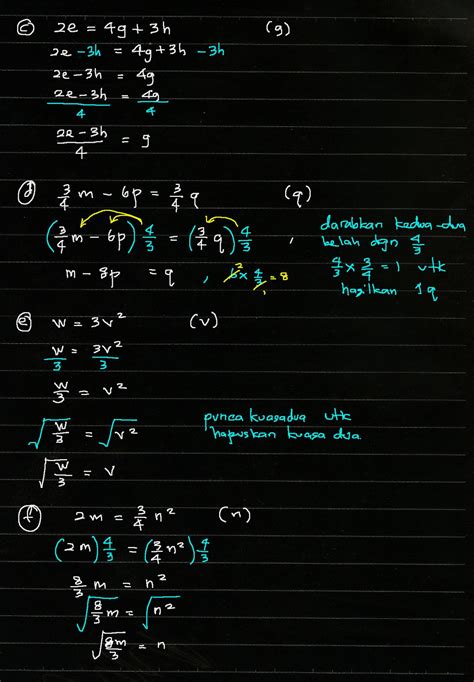 (c) 2e = 4g + 3h (g)
2e - 3h = 4g + 3h - 3h
2e - 3h = 4g
(2e - 3h)/4 = 4g/4
(2e - 3h)/4 = g
(d) 3/4 m - 6p = 3/4 q (q)
(3/4 m - 6p) 4/3 = (3/4 q) 4/3 , darabkan kedua-dua
belah dgn 4/3
m - 8p = q , 6² × 4/3₁ = 8 4/3 × 3/4 = 1 utk
hasilkan 1q
(e) w = 3v² (v)
w/3 = 3v²/3
w/3 = v²
√(w/3) = √v² punca kuasadua utk
hapuskan kuasa dua
√(w/3) = v
(f) 2m = 3/4 n² (n)
(2m) 4/3 = (3/4 n²) 4/3
8/3 m = n²
√(8/3 m) = √n²
√(8m/3) = n